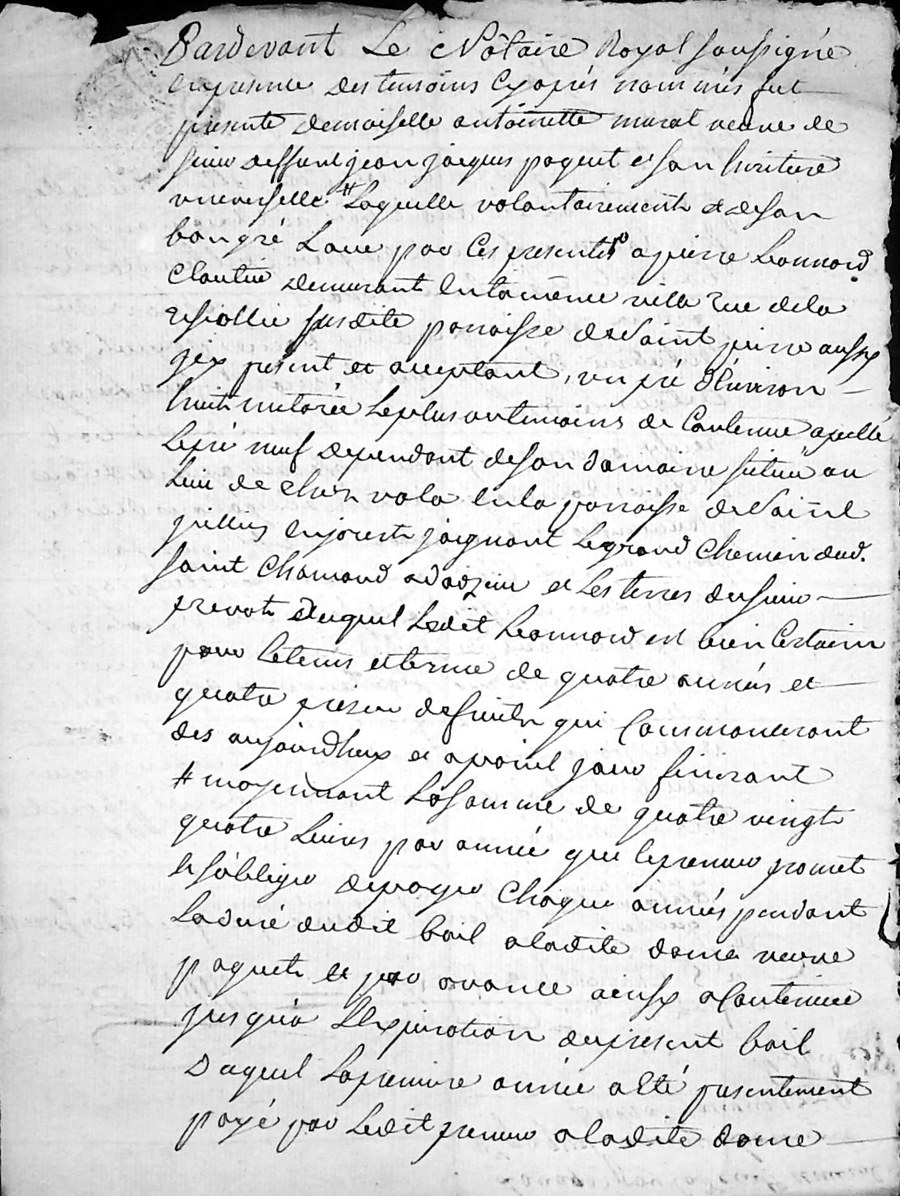 Pardevant Le Notaire Royal soussigné
en presence des temoins cy après nommés fut
presente demoiselle antoinette murat veuve de
sieur deffunt jean jacques paquet et son heritiere
universelle # Laquelle volontairement et de son
bon gré Loue par Ces presentes a pierre Leonnard
Cloutier demurant en la même ville rue de la
susdite parroisse de Saint pierre aussy
present et acceptant, un pré d'Environ
huit meterée Le plus ou le moins de Contenue apellé
Le pré neuf dependant de son domaine situé au
Lieu de la parroisse de Saint
jullien en jarest joignant Le grand Chemin dud.
Saint Chamond a et Les terres du sieur
prevot Duquel Ledit Leonnard est bien Certain
pour le tems et terme de quatre années et
quatre prises de fruits qui Commenceront
des aujourdhuy et a pareil jour finiront
# moyennant La somme de quatre vingt
quatre Livres par année que le preneur promet
et s'oblige de payer Chaque années pendant
La duré dudit bail a ladite dame veuve
paquet et par avance ainsy a Continuer
jusqu'a L'Expiration du present bail
Duquel La premiere année a Eté presentement
payé par Ledit preneur a ladite dame